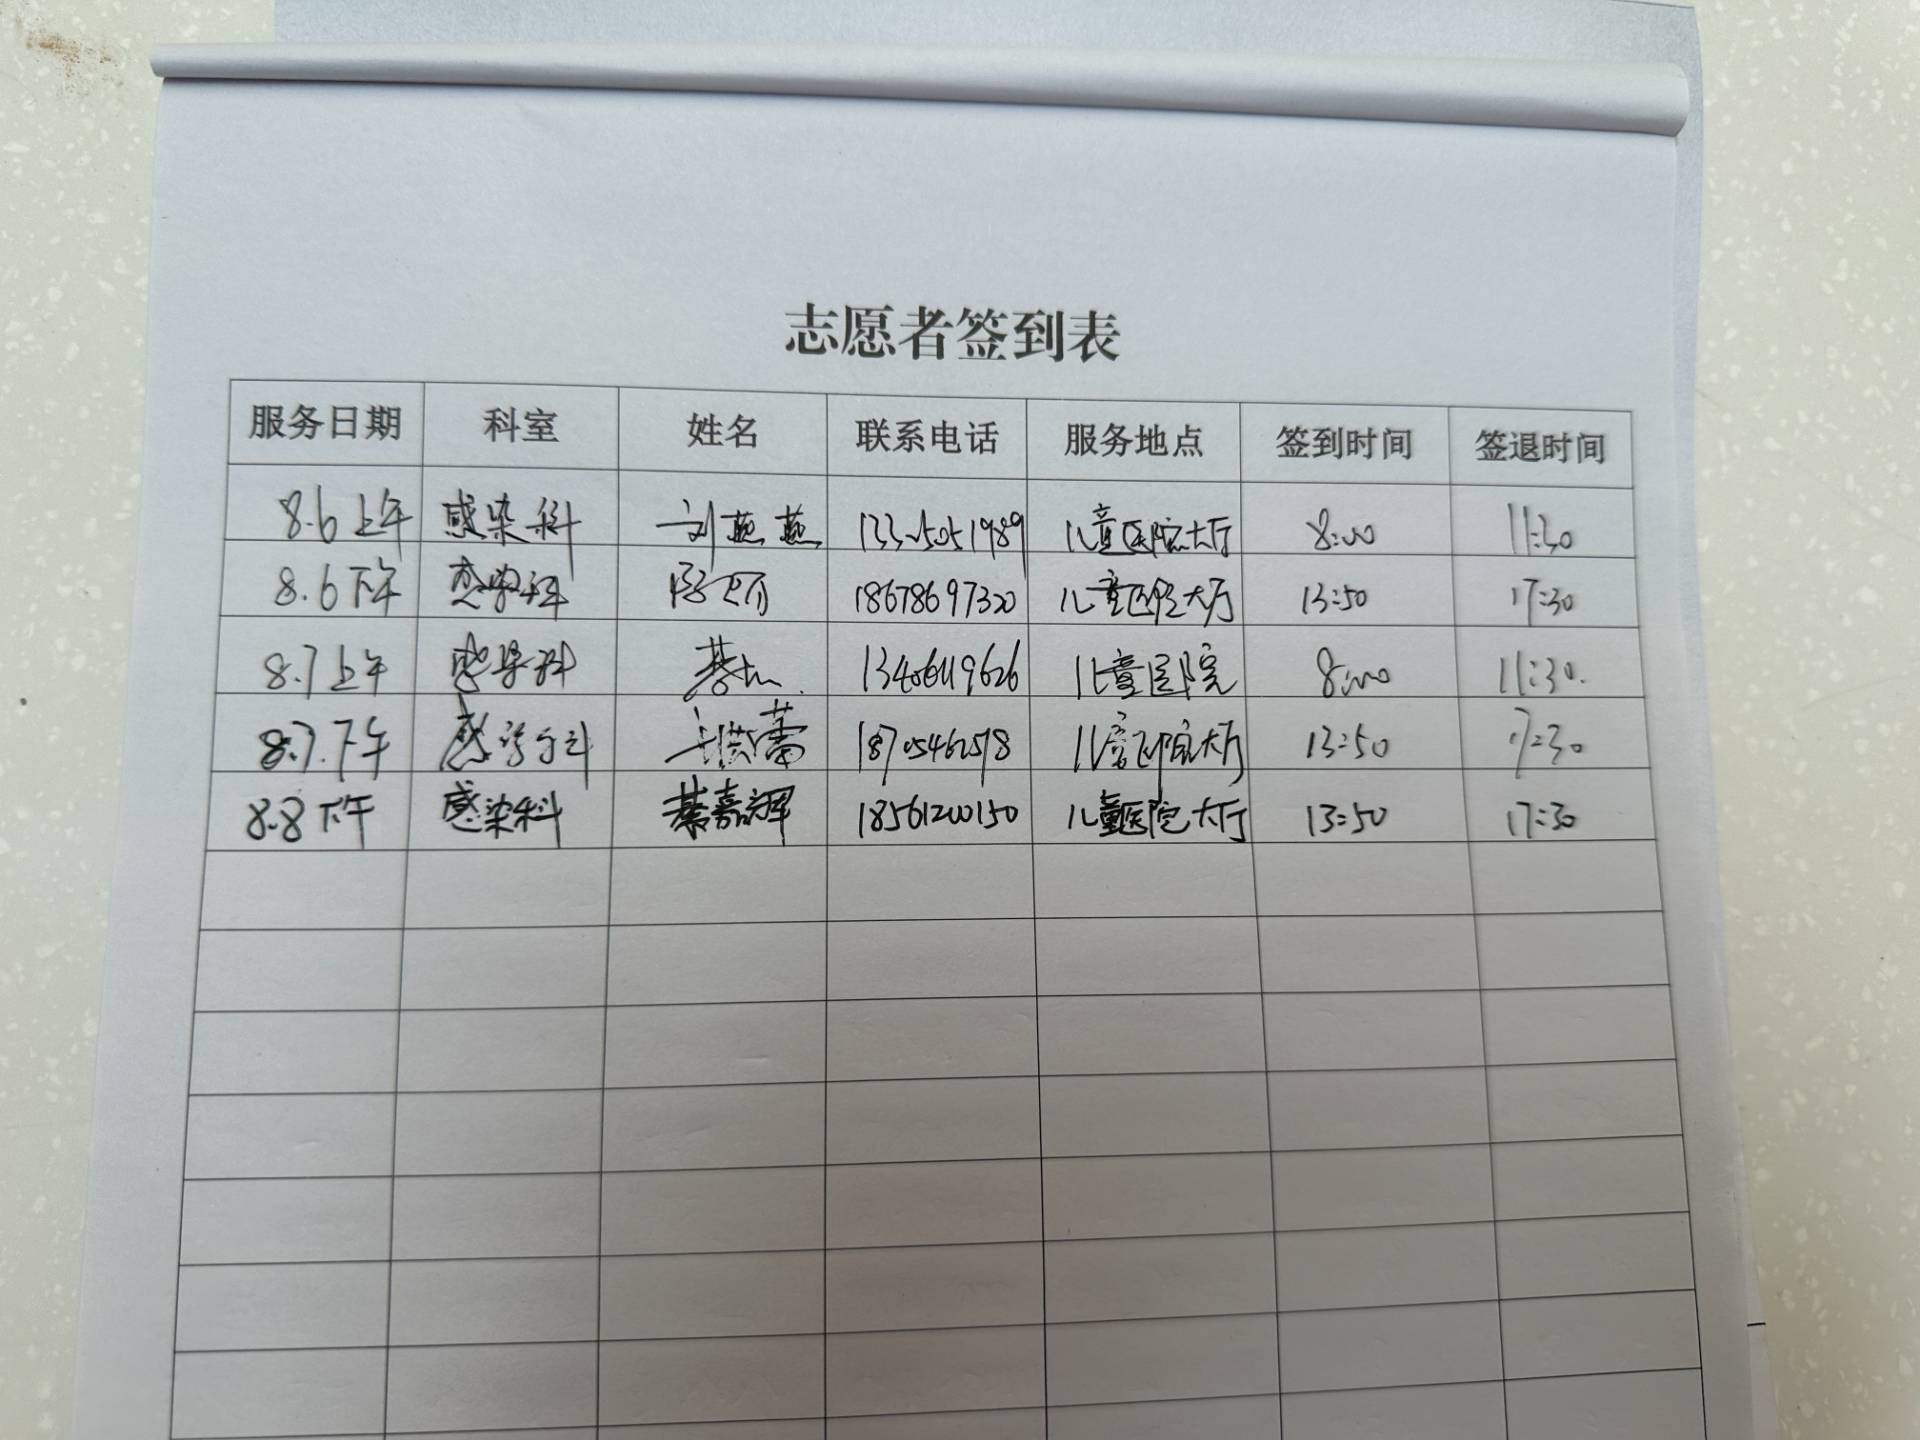 志愿者签到表
服务日期 科室 姓名 联系电话 服务地点 签到时间 签退时间
8.6上午 感染科 刘燕燕 儿童医院大厅 8:00 11:30
8.6下午 感染科 18678697320 儿童医院大厅 13:50 17:30
8.7上午 感染科 儿童医院 8:00 11:30.
8.7.下午 感染科 儿童医院大厅 13:50 17:30
8.8下午 感染科 綦嘉辉 18561200150 儿童医院大厅 13:50 17:30